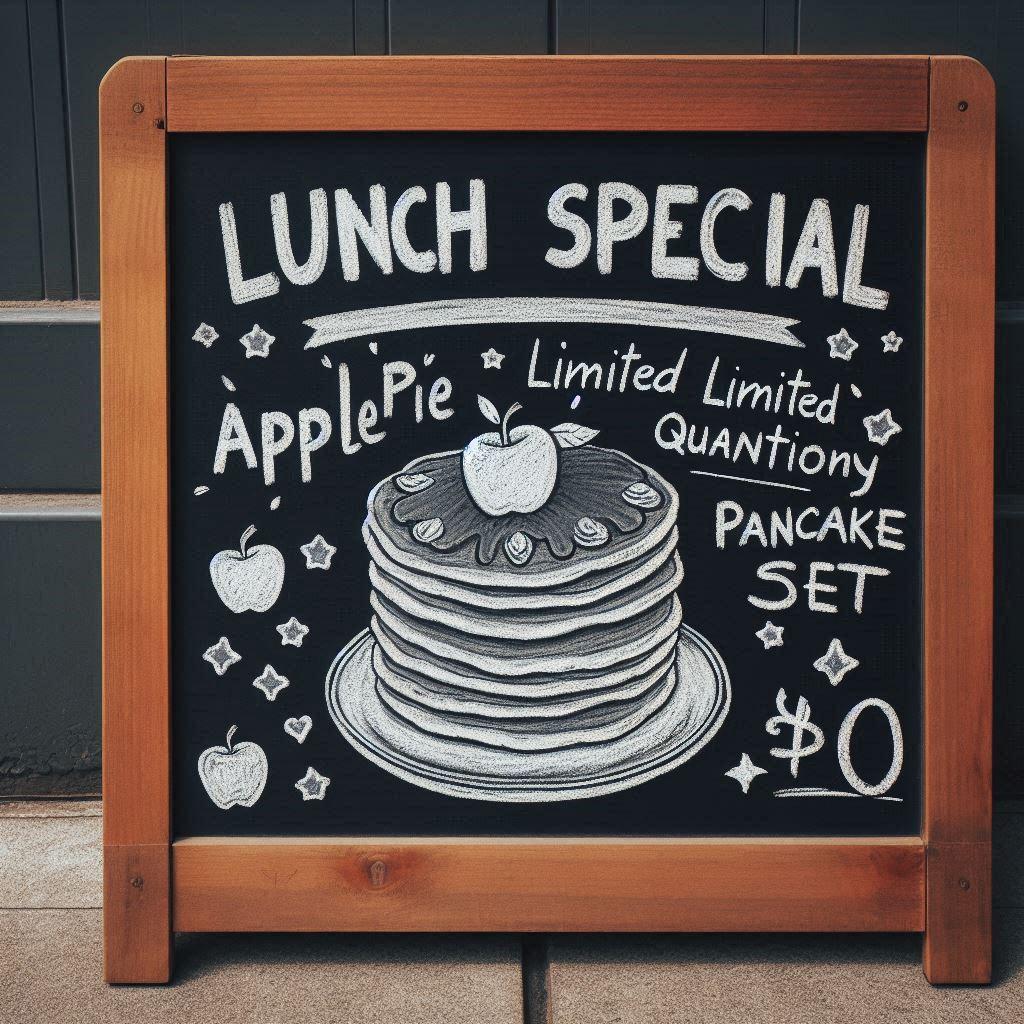 LUNCH SPECIAL
ApplePie
Limited Limited
QUANTiony
PANCAKE
SET
$0